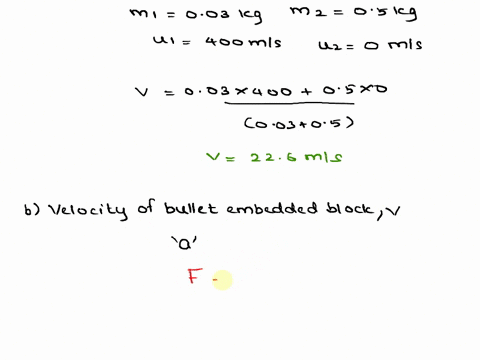 m1 = 0.03 kg m2 = 0.5 kg
u1 = 400 m/s u2 = 0 m/s
V = 0.03 × 400 + 0.5 × 0
(0.03 + 0.5)
V = 22.6 m/s
b) Velocity of bullet embedded block, V
'a'
F -